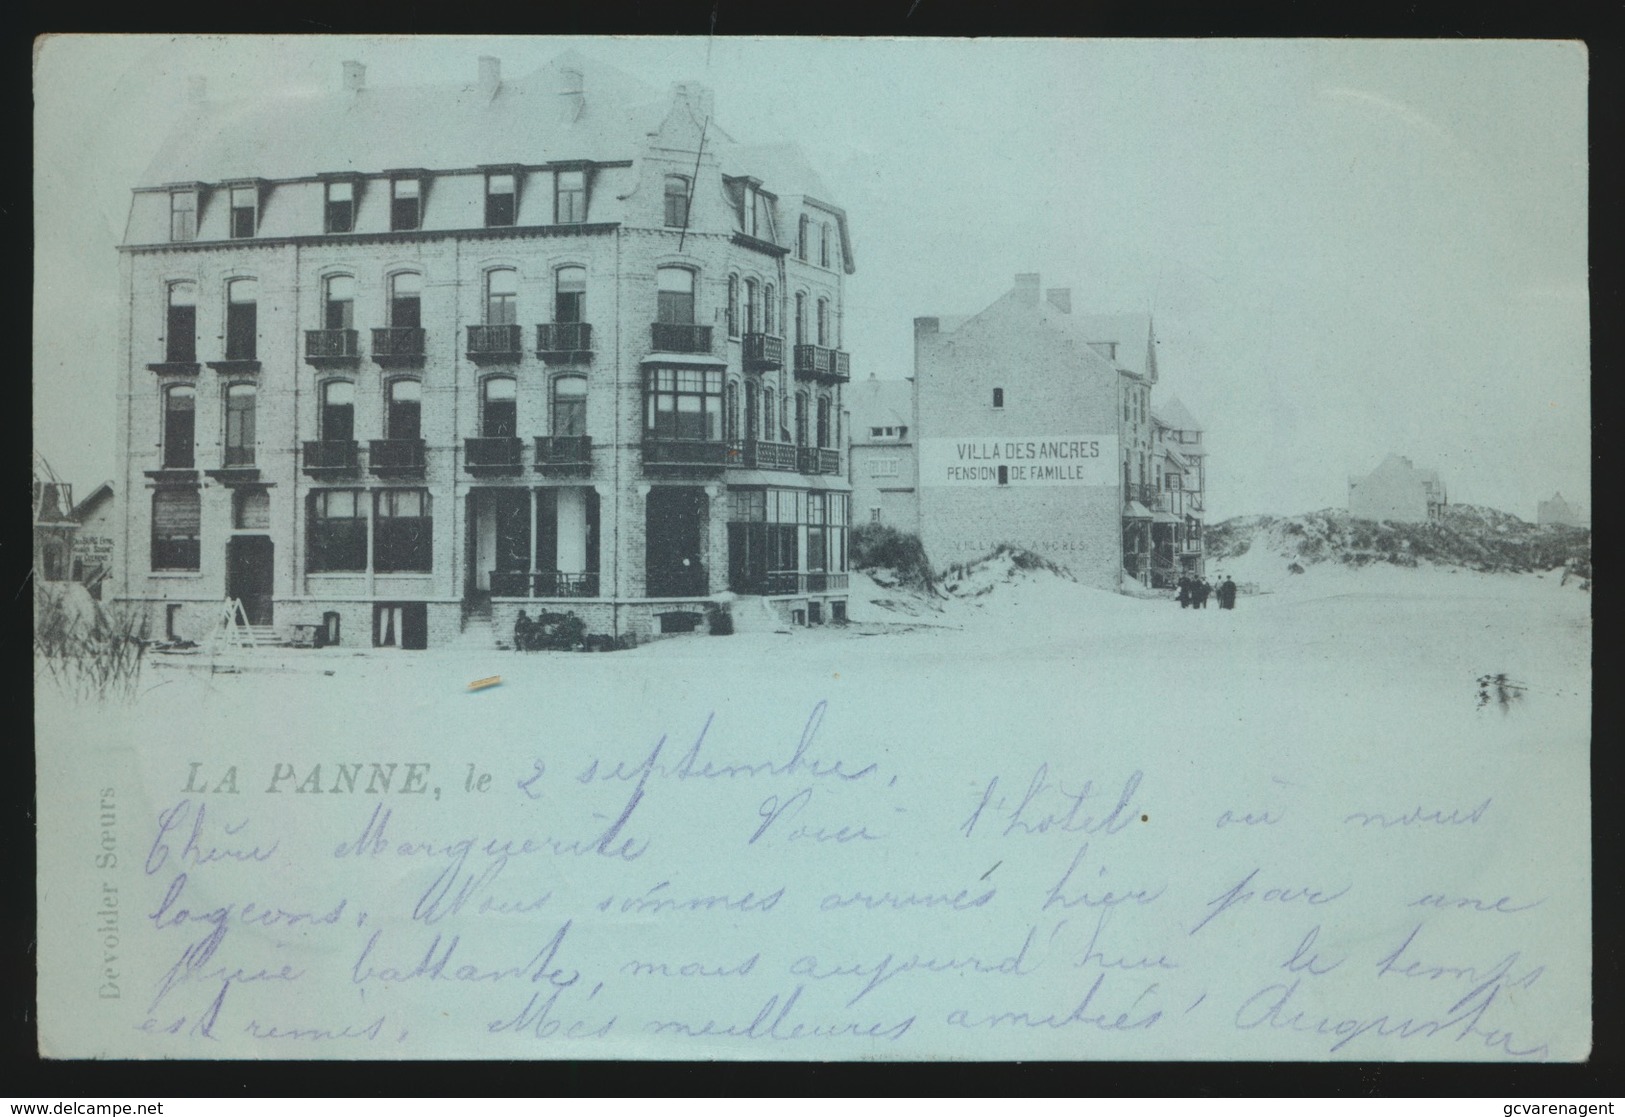 VILLA DES ANCRES
PENSION DE FAMILLE
VILLA DES ANCRES
LA PANNE, le 2 septembre.
Chère Marguerite Voici l'hôtel où nous
logeons. Nous sommes arrivés hier par une
pluie battante, mais aujourd'hui le temps
est remis. Mes meilleures amitiés Augusta
Devolder Sœurs
www.delcampe.net
gcvarenagent